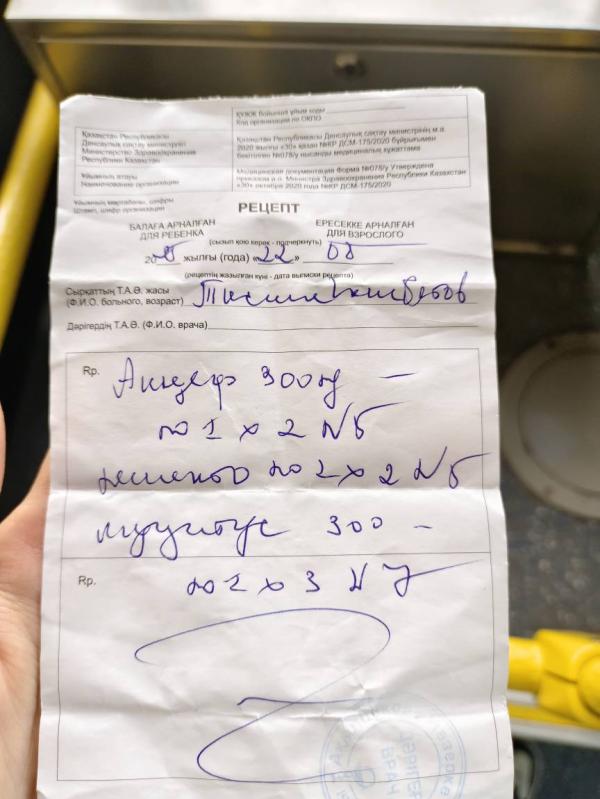 ҚҰЖЖ бойынша ұйым коды
Код организации по ОКПО
Қазақстан Республикасы
Денсаулық сақтау министрлігі
Министерство Здравоохранения
Республики Казахстан
Қазақстан Республикасы Денсаулық сақтау министрінің м.а.
2020 жылғы «30» қазан №ҚР ДСМ-175/2020 бұйрығымен
бекітілген №078/у нысанды медициналық құжаттама
Ұйымның атауы
Наименование организации
Медицинская документация форма №078/у Утверждена
приказом и.о. Министра Здравоохранения Республики Казахстан
«30» октября 2020 года №ҚР ДСМ-175/2020
Ұйымның мөртабаны, шифры
Штамп, шифр организации
РЕЦЕПТ
БАЛАҒА АРНАЛҒАН
ДЛЯ РЕБЕНКА
ЕРЕСЕККЕ АРНАЛҒАН
ДЛЯ ВЗРОСЛОГО
(сызып қою керек - подчеркнуть)
20 жылғы (года) «22» 08
(рецептің жазылған күні - дата выписки рецепта)
Сырқаттың Т.А.Ә. жасы
(Ф.И.О. больного, возраст)
Дәрігердің Т.А.Ә. (Ф.И.О. врача)
Rp.
300 –
по 1 х 2 N5
по 1 х 2 N5
300 –
Rp. по 1 х 3 N 7
ДӘРІГЕР
ВРАЧ